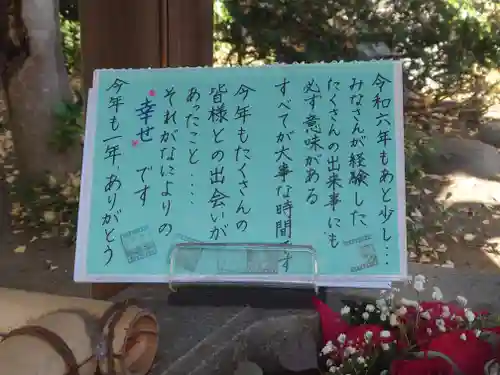 令和六年もあと少し...
みなさんが経験した
たくさんの出来事にも
必ず意味がある
すべてが大事な時間です
今年もたくさんの
皆様との出会いが
あったこと....
それがなによりの
幸せです
今年も一年、ありがとう